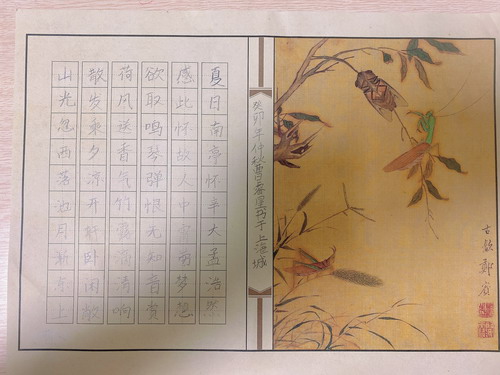 夏日南亭怀辛大孟浩然
感此怀故人中宵劳梦想
欲取鸣琴弹恨无知音赏
荷风送香气竹露滴清响
散发乘夕凉开轩卧闲敞
山光忽西落池月渐东上
癸卯年仲秋曹于上海城
古歙鄭